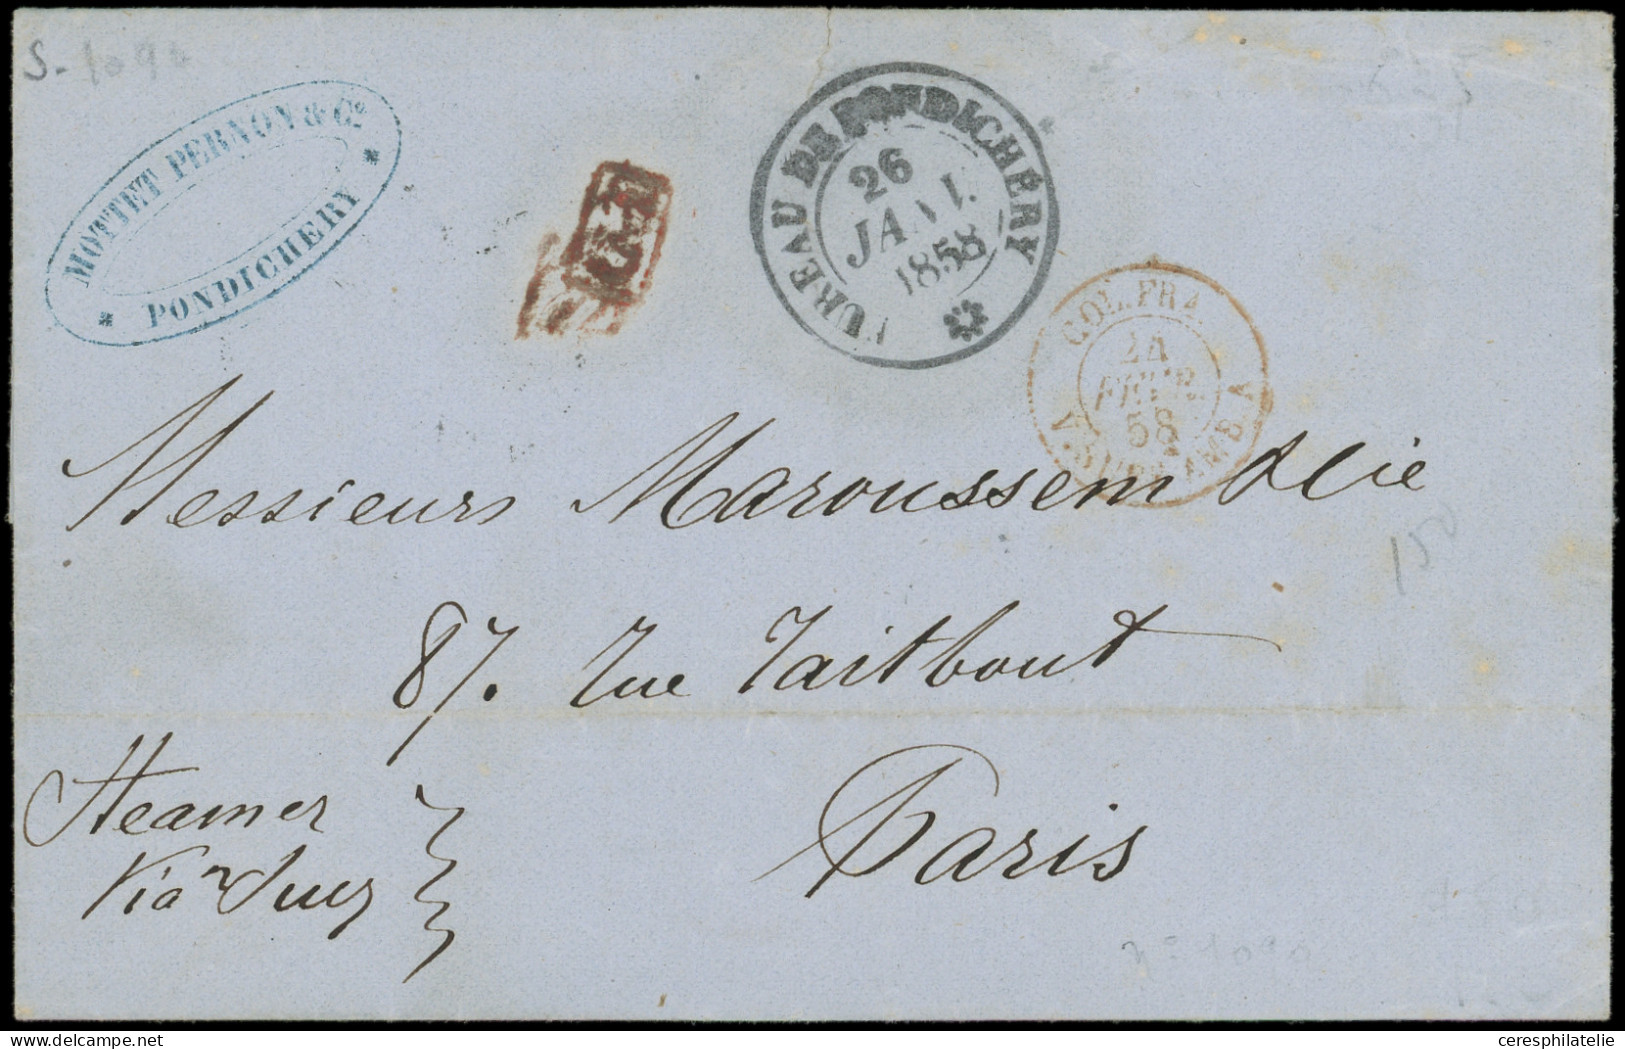 MOTTET PERNON & Co.
PONDICHERY
BUREAU DE PONDICHÉRY
26
JANV.
1858
COL. FRA
24
FEVR.
58
V. SUEZ AMB. A
Messieurs Maroussem & Cie
87. Rue Taitbout
Paris
Steamer
Via Suez
150
ceresphilatelie